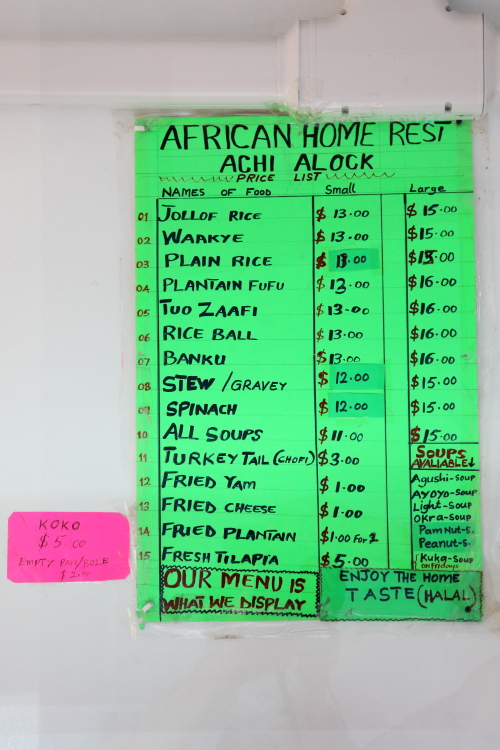 AFRICAN HOME REST
ACHI ALOCK
PRICE LIST
NAMES OF FOOD Small Large
01 JOLLOF RICE $ 13.00 $ 15.00
02 WAAKYE $ 13.00 $15.00
03 PLAIN RICE $ 13.00 $15.00
04 PLANTAIN FUFU $ 13.00 $16.00
05 TUO ZAAFI $13.00 $16.00
06 RICE BALL $13.00 $16.00
07 BANKU $13.00 $16.00
08 STEW /GRAVEY $ 12.00 $15.00
09 SPINACH $ 12.00 $15.00
10 ALL SOUPS $11.00 $15.00
11 TURKEY TAIL (CHOFI) $3.00
12 FRIED YAM $1.00
13 FRIED CHEESE $1.00
14 FRIED PLANTAIN $1.00 For 1
15 FRESH TILAPIA $5.00
SOUPS
AVALIABLE↓
Agushi-soup
Ayoyo-soup
Light-Soup
Okra-Soup
Pam Nut-s.
Peanut-s.
Kuka-Soup
on Fridays
OUR MENU IS
WHAT WE DISPLAY
ENJOY THE HOME
TASTE (HALAL)
KOKO
$5.00
EMPTY